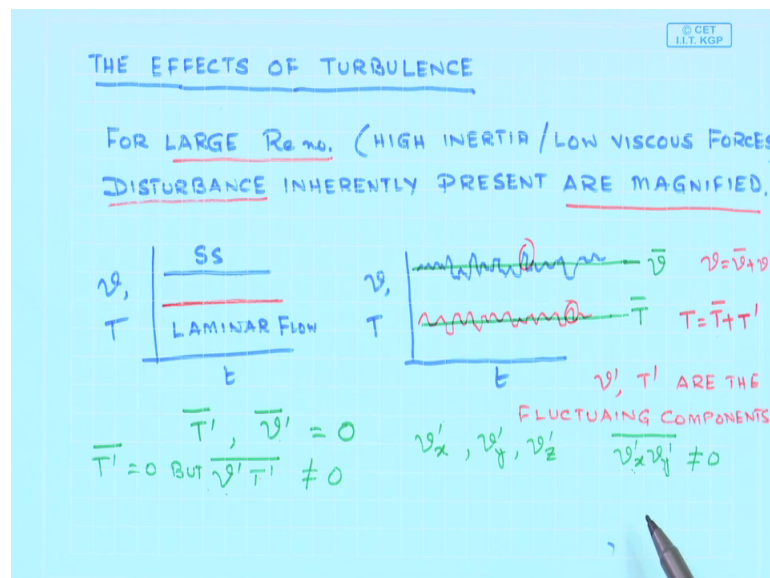 © CET
I.I.T. KGP
THE EFFECTS OF TURBULENCE
FOR LARGE Re no. (HIGH INERTIA / LOW VISCOUS FORCES
DISTURBANCE INHERENTLY PRESENT ARE MAGNIFIED.
SS
v,
T
LAMINAR FLOW
t
v,
T
t
v̅ v = v̅ + v
T̅ T = T̅ + T'
v', T' ARE THE
FLUCTUAING COMPONENTS
T̅', v̅' = 0
T̅' = 0 BUT \overline{v' T'} ≠ 0
v'x, v'y, v'z \overline{v'x v'y} ≠ 0